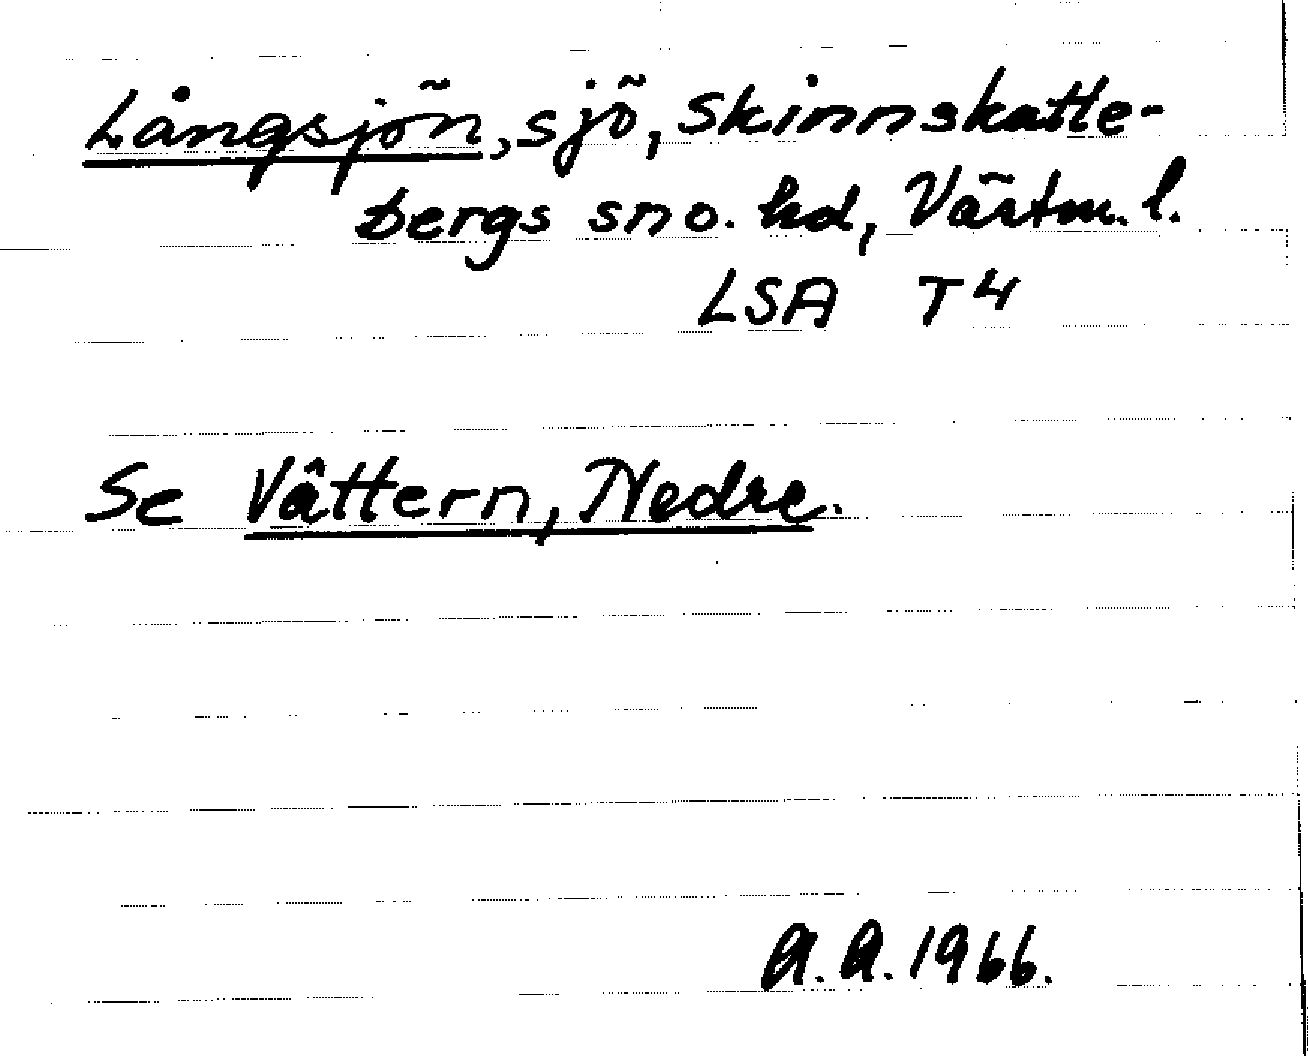 Långsjön, sjö, Skinnskatte-
bergs sno. hd, Västm. l.
LSA T4
Se Vättern, Nedre.
A.A. 1966.